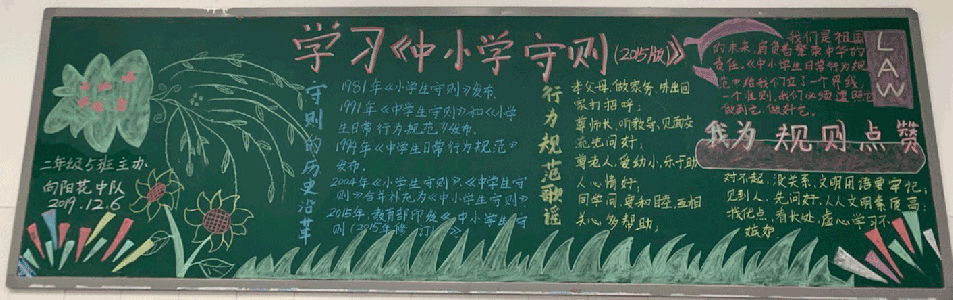 学习《中小学守则(2015版)》
二年级5班主办
向阳花中队
2019.12.6
守则的历史沿革
1981年《小学生守则》发布.
1991年《中学生守则》和《小学
生日常行为规范》发布.
1994年《中学生日常行为规范》
发布.
2004年《小学生守则》、《中学生守
则》合并补充为《中小学生守则》
2015年,教育部印发《中小学生守
则(2015年修订)》
行为规范歌谣
孝父母,做家务,
家打招呼;
尊师长,听教导,见面交
流先问好;
尊老人,爱幼小,乐于助
人心情好;
同学间,要和睦,互相
关心多帮助;
我们是祖国
的未来,肩负着繁荣中华的
责任,《中小学生日常行为规
范》给我们立了一个界线,
一个准则,我们必须遵照它
做到它,做好它.
LAW
我为规则点赞
对不起,没关系,文明用语要牢记;
见到人,先问好,人人文明素质高;
找优点,看长处,虚心学习不